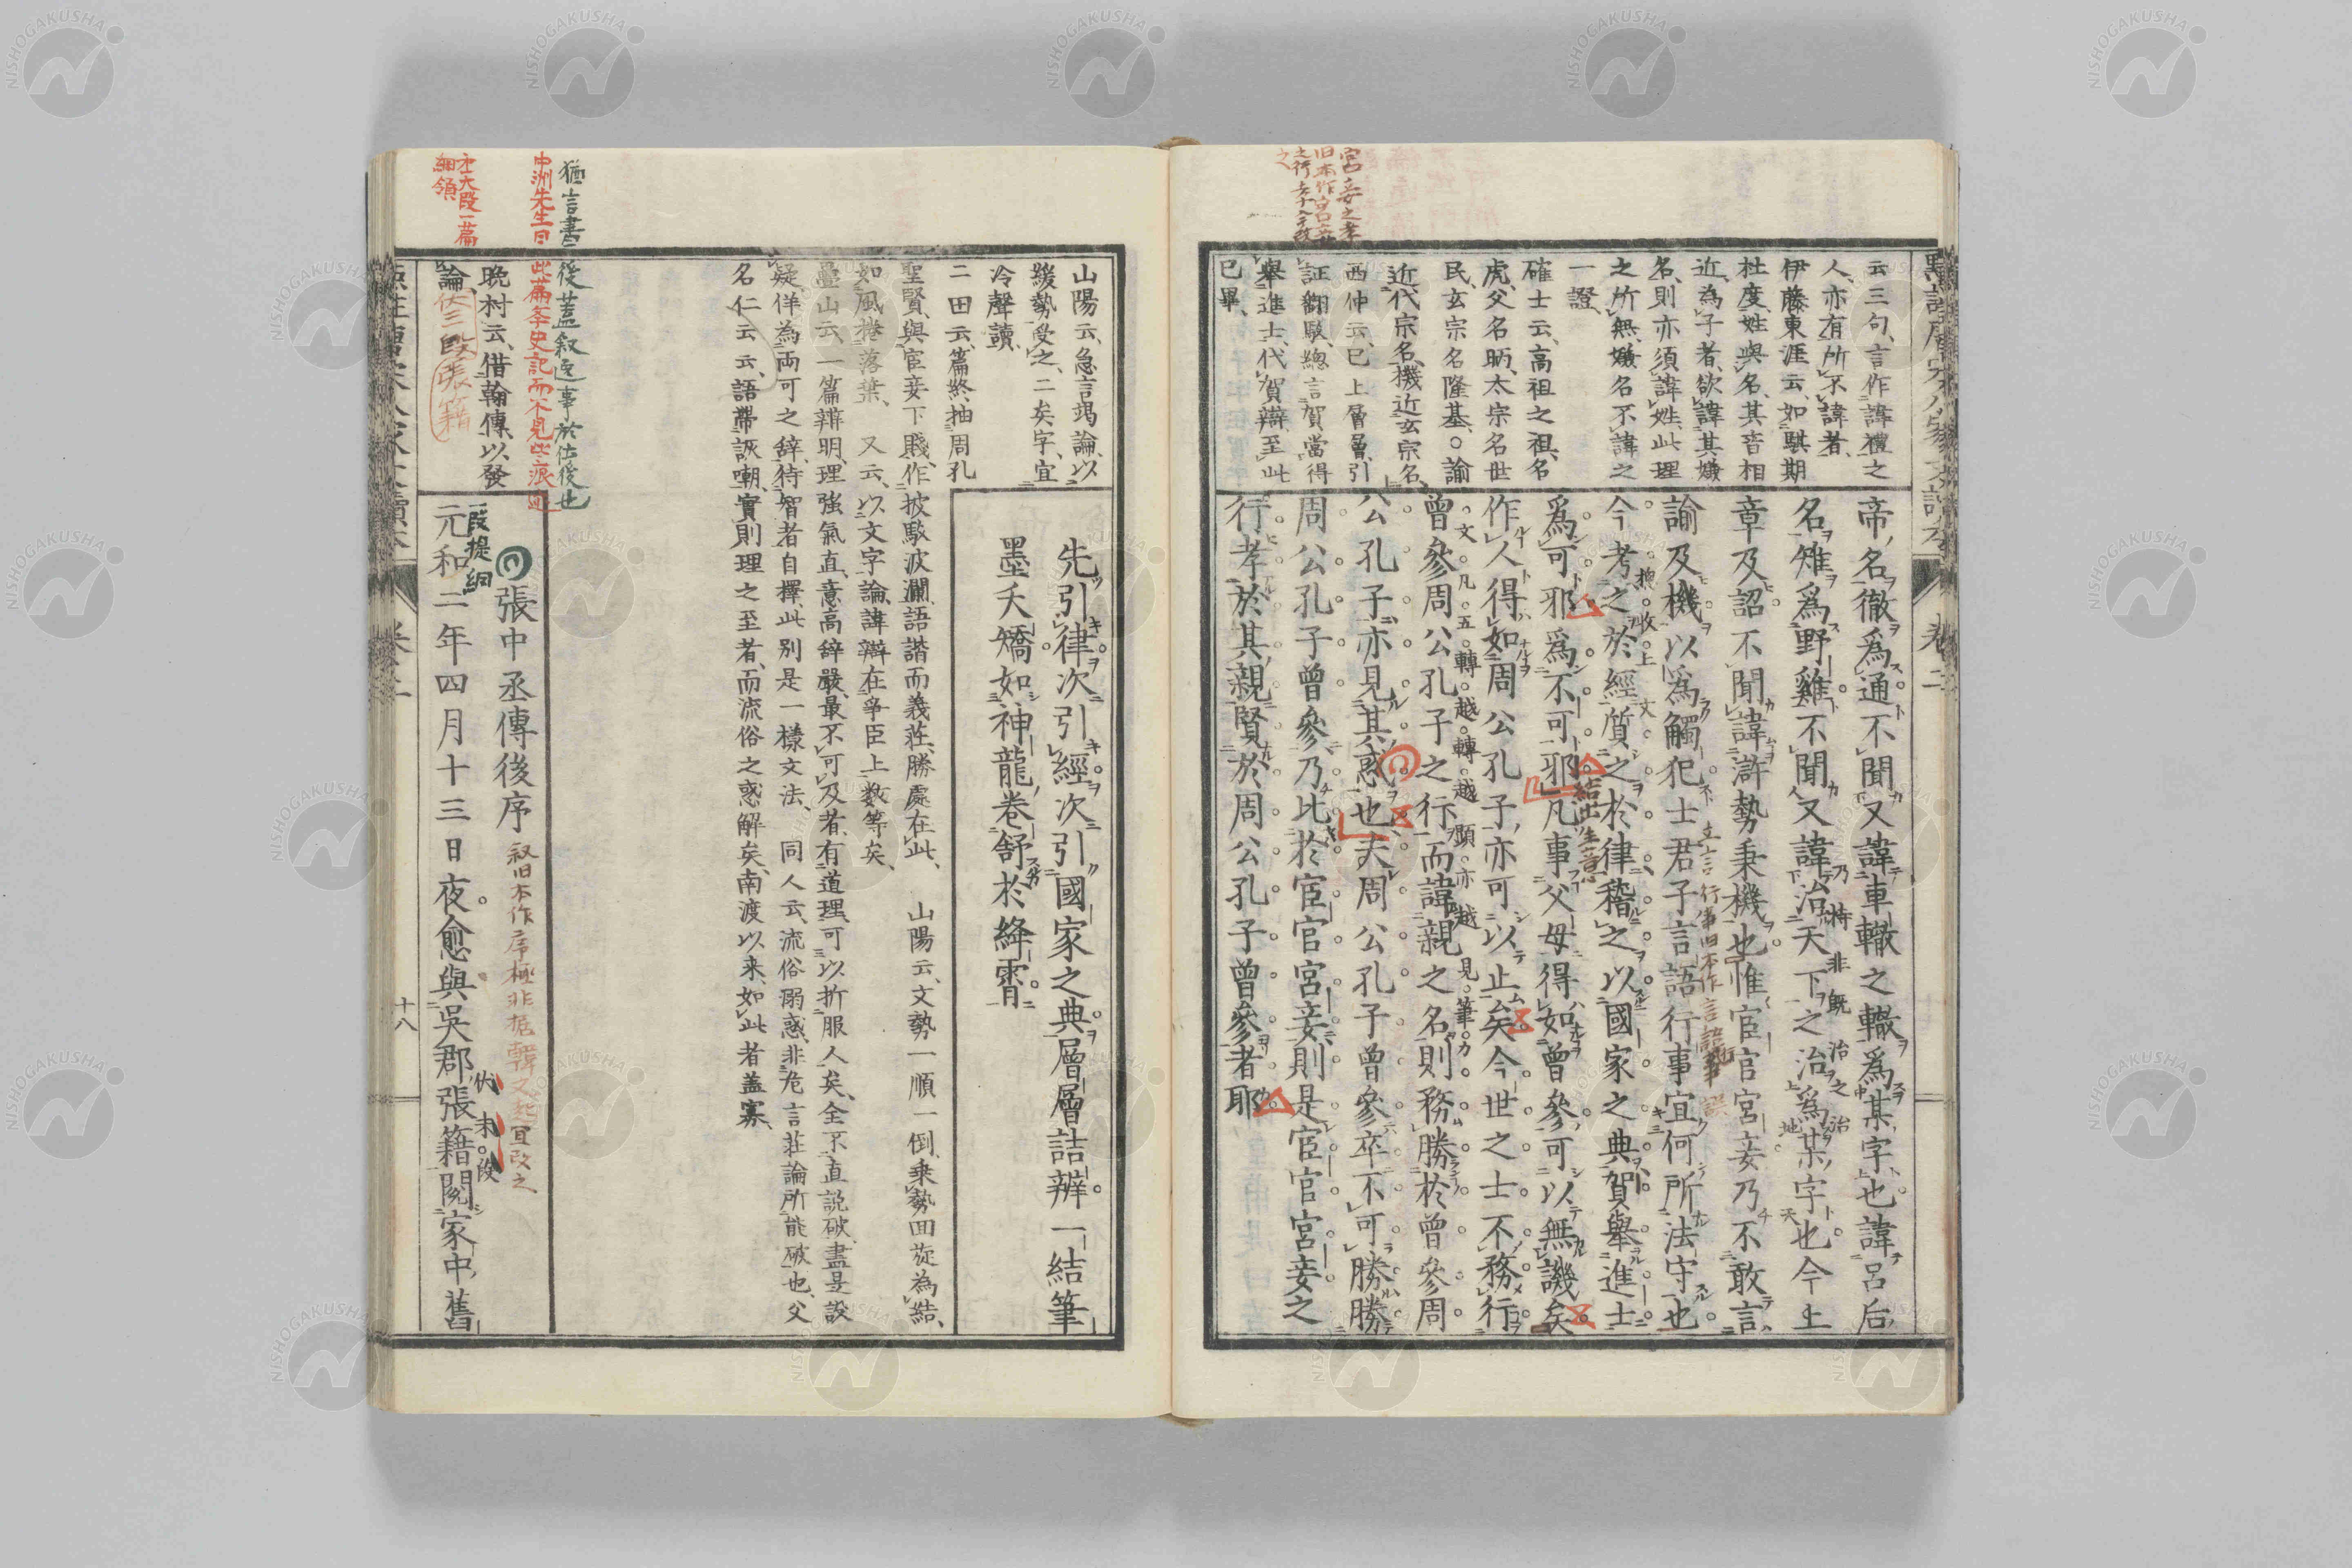 云三句、言作諱禮之
人、亦有所不諱者、
伊藤東涯云、如騏期
杜度、姓與名、其音相
近、為子者、欲諱其嫌
名、則亦須諱姓、此理
之所無、嫌名不諱之
一證、
確士云、高祖之祖、名
虎、父名昞、太宗名世
民、玄宗名隆基、○諭
近代宗名、機近玄宗名、
西仲云、已上層層引
証翻駁、總言賀當得
舉進士、代賀辯、至此
已畢、
帝名徹爲通不聞又諱車轍之轍爲某字也諱呂后
名雉爲野雞不聞又諱治天下之治爲某字也今上
章及詔不聞諱滸勢秉機也惟宦官宮妾乃不敢言
諭及機以爲觸犯士君子言語行事宜何所法守也
今考之於經質之於律稽之以國家之典賀舉進士
爲可邪爲不可邪凡事父母得如曾參可以無譏矣
作人得如周公孔子亦可以止矣今世之士不務行
曾參周公孔子之行而諱親之名則務勝於曾參周
公孔子亦見其惑也夫周公孔子曾參卒不可勝勝
周公孔子曾參乃比於宦官宮妾則是宦官宮妾之
行孝於其親賢於周公孔子曾參者耶
宮妾之孝
旧本作宮妾
之行孝今改
之
總收上文
文凡五轉越轉越顯亦越見筆力
結出生意
乃時非既治之治
立言行事旧本作言語行事誤
卷二
山陽云、急言竭論、以
緩勢受之、二矣字、宜
冷聲讀、
二田云、篇終、抽周孔
聖賢、與宦妾下賤、作披駁波瀾、語諧而義莊、勝處在此、 山陽云、文勢一順一倒、乘勢回旋為結、
如風捲落葉、 又云、以文字論、諱辯在爭臣上數等矣、
疊山云、一篇辯明、理強氣直、意高辭嚴、最不可及者、有道理、可以折服人矣、全不直說破、盡是設
疑、佯為兩可之辞、待智者自擇、此別是一樣文法、 同人云、流俗溺惑、非危言莊論所能破也、父
名仁云云、語帶詼嘲、實則理之至者、而流俗之惑解矣、南渡以来、如此者蓋寡、
先引律次引經次引國家之典層層詰辨一結筆
墨夭矯如神龍卷舒於絳霄
猶言書後蓋叙逸事於佐後也
中洲先生曰此篇夲史記而不見些痕迹
才大段一篇
綱領
晩村云、借翰傳、以發
論、
伏三段張籍
張中丞傳後序
叙旧本作序極非据韓文起宜改之
一段提綱
元和二年四月十三日夜愈與吳郡張籍閱家中舊
伏末段
十八